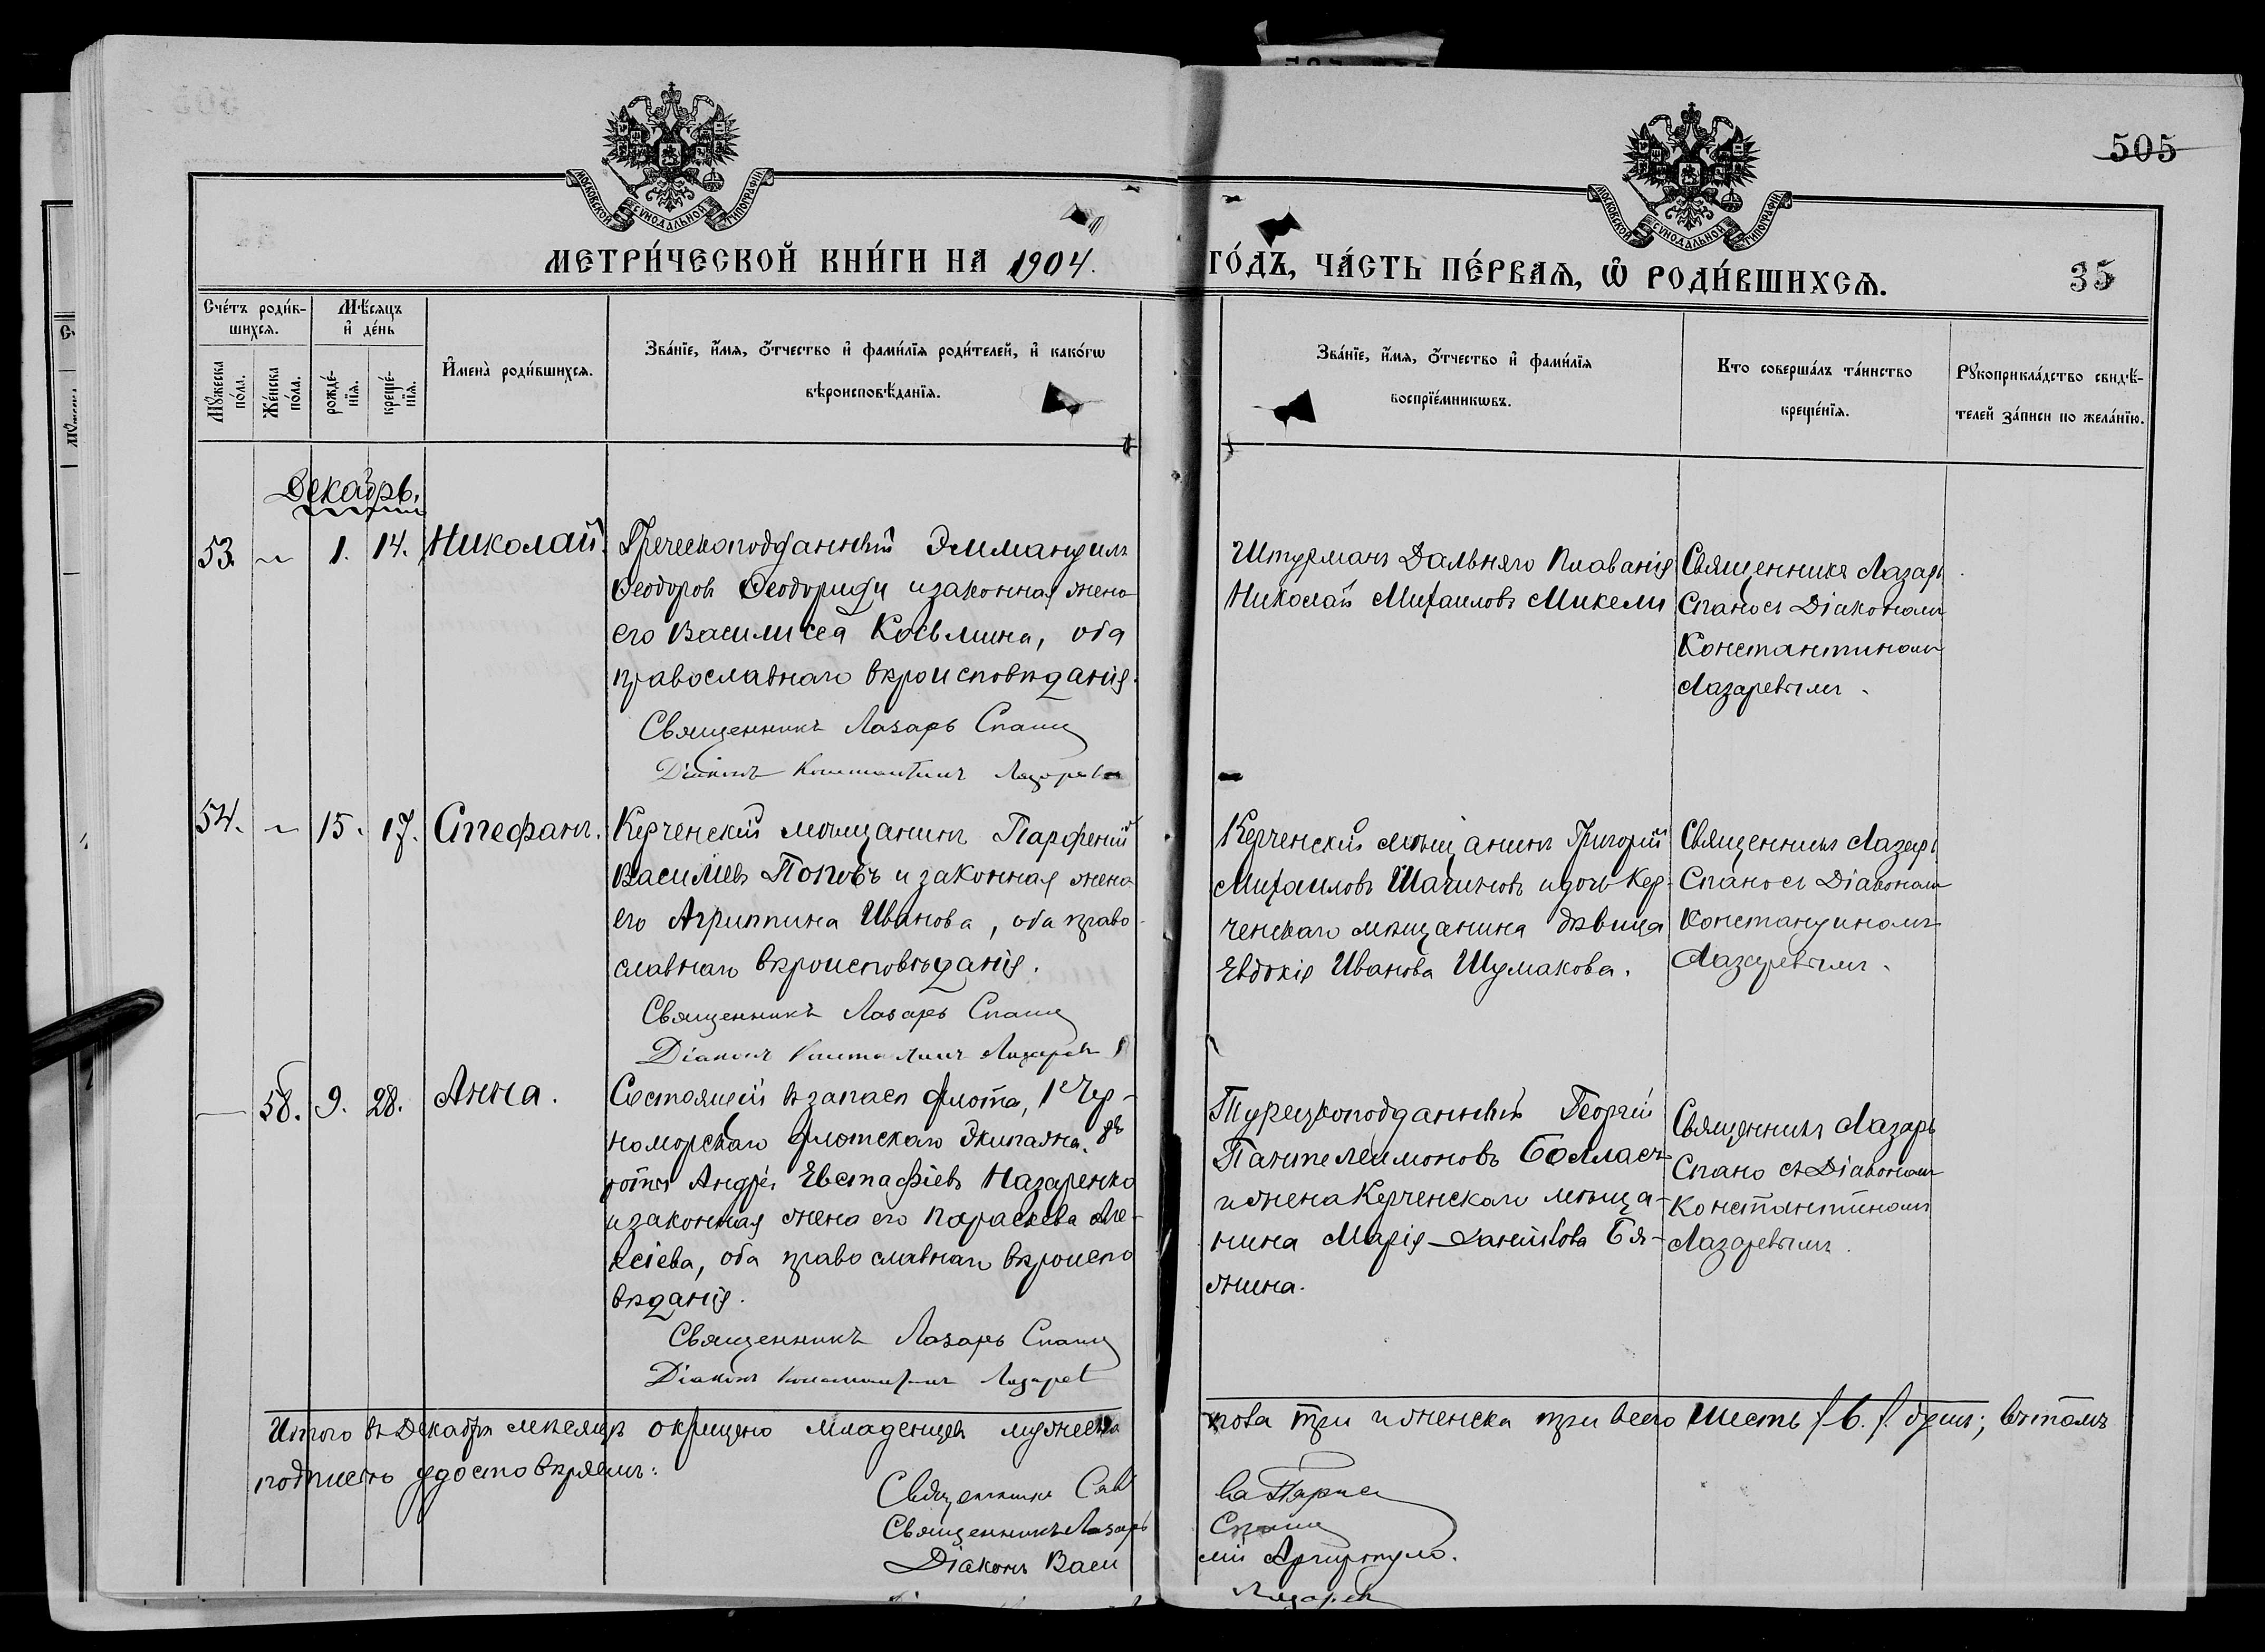 505
МОСКОВСКОЙ СѴНОДАЛЬНОЙ ТИПОГРАФІИ
МОСКОВСКОЙ СѴНОДАЛЬНОЙ ТИПОГРАФІИ
МЕТРИ́ЧЕСКОЙ КНИ́ГИ НА 1904. ГО́ДЪ, ЧА́СТЬ ПЕ́РВАѦ, Ѽ РОДИ́ВШИХСѦ.
35
Сче́тъ роди́в-
шихсѧ.
Мꙋ́жеска
по́ла.
Же́нска
по́ла.
Мѣ́сѧцъ
и҆ де́нь
рожде́-
нїѧ.
креще́-
нїѧ.
И҆мена̀ роди́вшихсѧ.
Зва́нїе, и҆́мѧ, ѻ҆́тчество и҆ фами́лїѧ роди́телей, и҆ како́гѡ
вѣроисповѣ́данїѧ.
Зва́нїе, и҆́мѧ, ѻ҆́тчество и҆ фами́лїѧ
воспрїе́мникѡвъ.
Кто соверша́лъ та́инство
креще́нїѧ.
Рꙋкоприкла́дство свидѣ́-
телей за́писи по жела́нїю.
Декабрь.
53. ~ 1. 14. Николай.
Греческоподданный Эммануилъ
Ѳеодоровъ Ѳеодориди и законная жена
его Василисса Косьмина, оба
православнаго вѣроисповѣданія.
Священникъ Лазарь Спано
Діаконъ Константинъ Лазаревъ
Штурманъ Дальняго Плаванія
Николай Михаиловъ Микели
Священникъ Лазарь
Спано съ Діакономъ
Константиномъ
Лазаревымъ.
54. ~ 15. 17. Стефанъ.
Керченскій мѣщанинъ Парфеній
Василіевъ Поповъ и законная жена
его Агриппина Иванова, оба право-
славнаго вѣроисповѣданія.
Священникъ Лазарь Спано
Діаконъ Константинъ Лазаревъ
Керченскій мѣщанинъ Григорій
Михаиловъ Шагиновъ и дочь Кер-
ченскаго мѣщанина дѣвица
Евдокія Иванова Шумакова.
Священникъ Лазарь
Спано съ Діакономъ
Константиномъ
Лазаревымъ.
— 58. 9. 28. Анна.
Состоящій въ запасѣ флота, 1 Чер-
номорскаго флотскаго Экипажа, 8й
роты Андрей Евстафіевъ Назаренко
и законная жена его Параскева Але-
ксіева, оба православнаго вѣроиспо
вѣданія.
Священникъ Лазарь Спано
Діаконъ Константинъ Лазарев
Турецкоподданный Георгій
ПантелеимоновъБолласъ
и жена Керченскаго мѣща-
нина Марія Даниилова Бя-
жина.
Священникъ Лазарь
Спано съ Діакономъ
Константиномъ
Лазаревымъ.
Итого въ Декабрѣ мѣсяцѣ окрещено младенцевъ мужеска пола три и женска три всего шесть /6./ душъ; въ томъ
подписью удостовѣряемъ:
Священникъ Савва
Священникъ Лазарь Спано
Діаконъ Василій Аргиропуло.
Лазаревъ